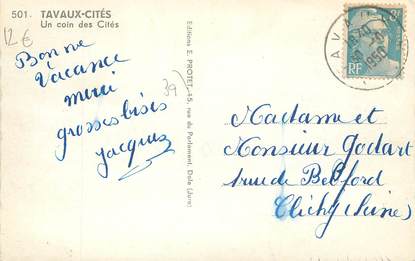 501. TAVAUX-CITÉS
Un coin des Cités
12 €
Bonne
vacance
merci
grosses bises
Jacques
39
Editions E. PROTET, 45, rue du Parlement, Dole (Jura)
TAVAUX
1950
RF
Madame et
Monsieur Godart
1 rue de Belford
Clichy (Seine)